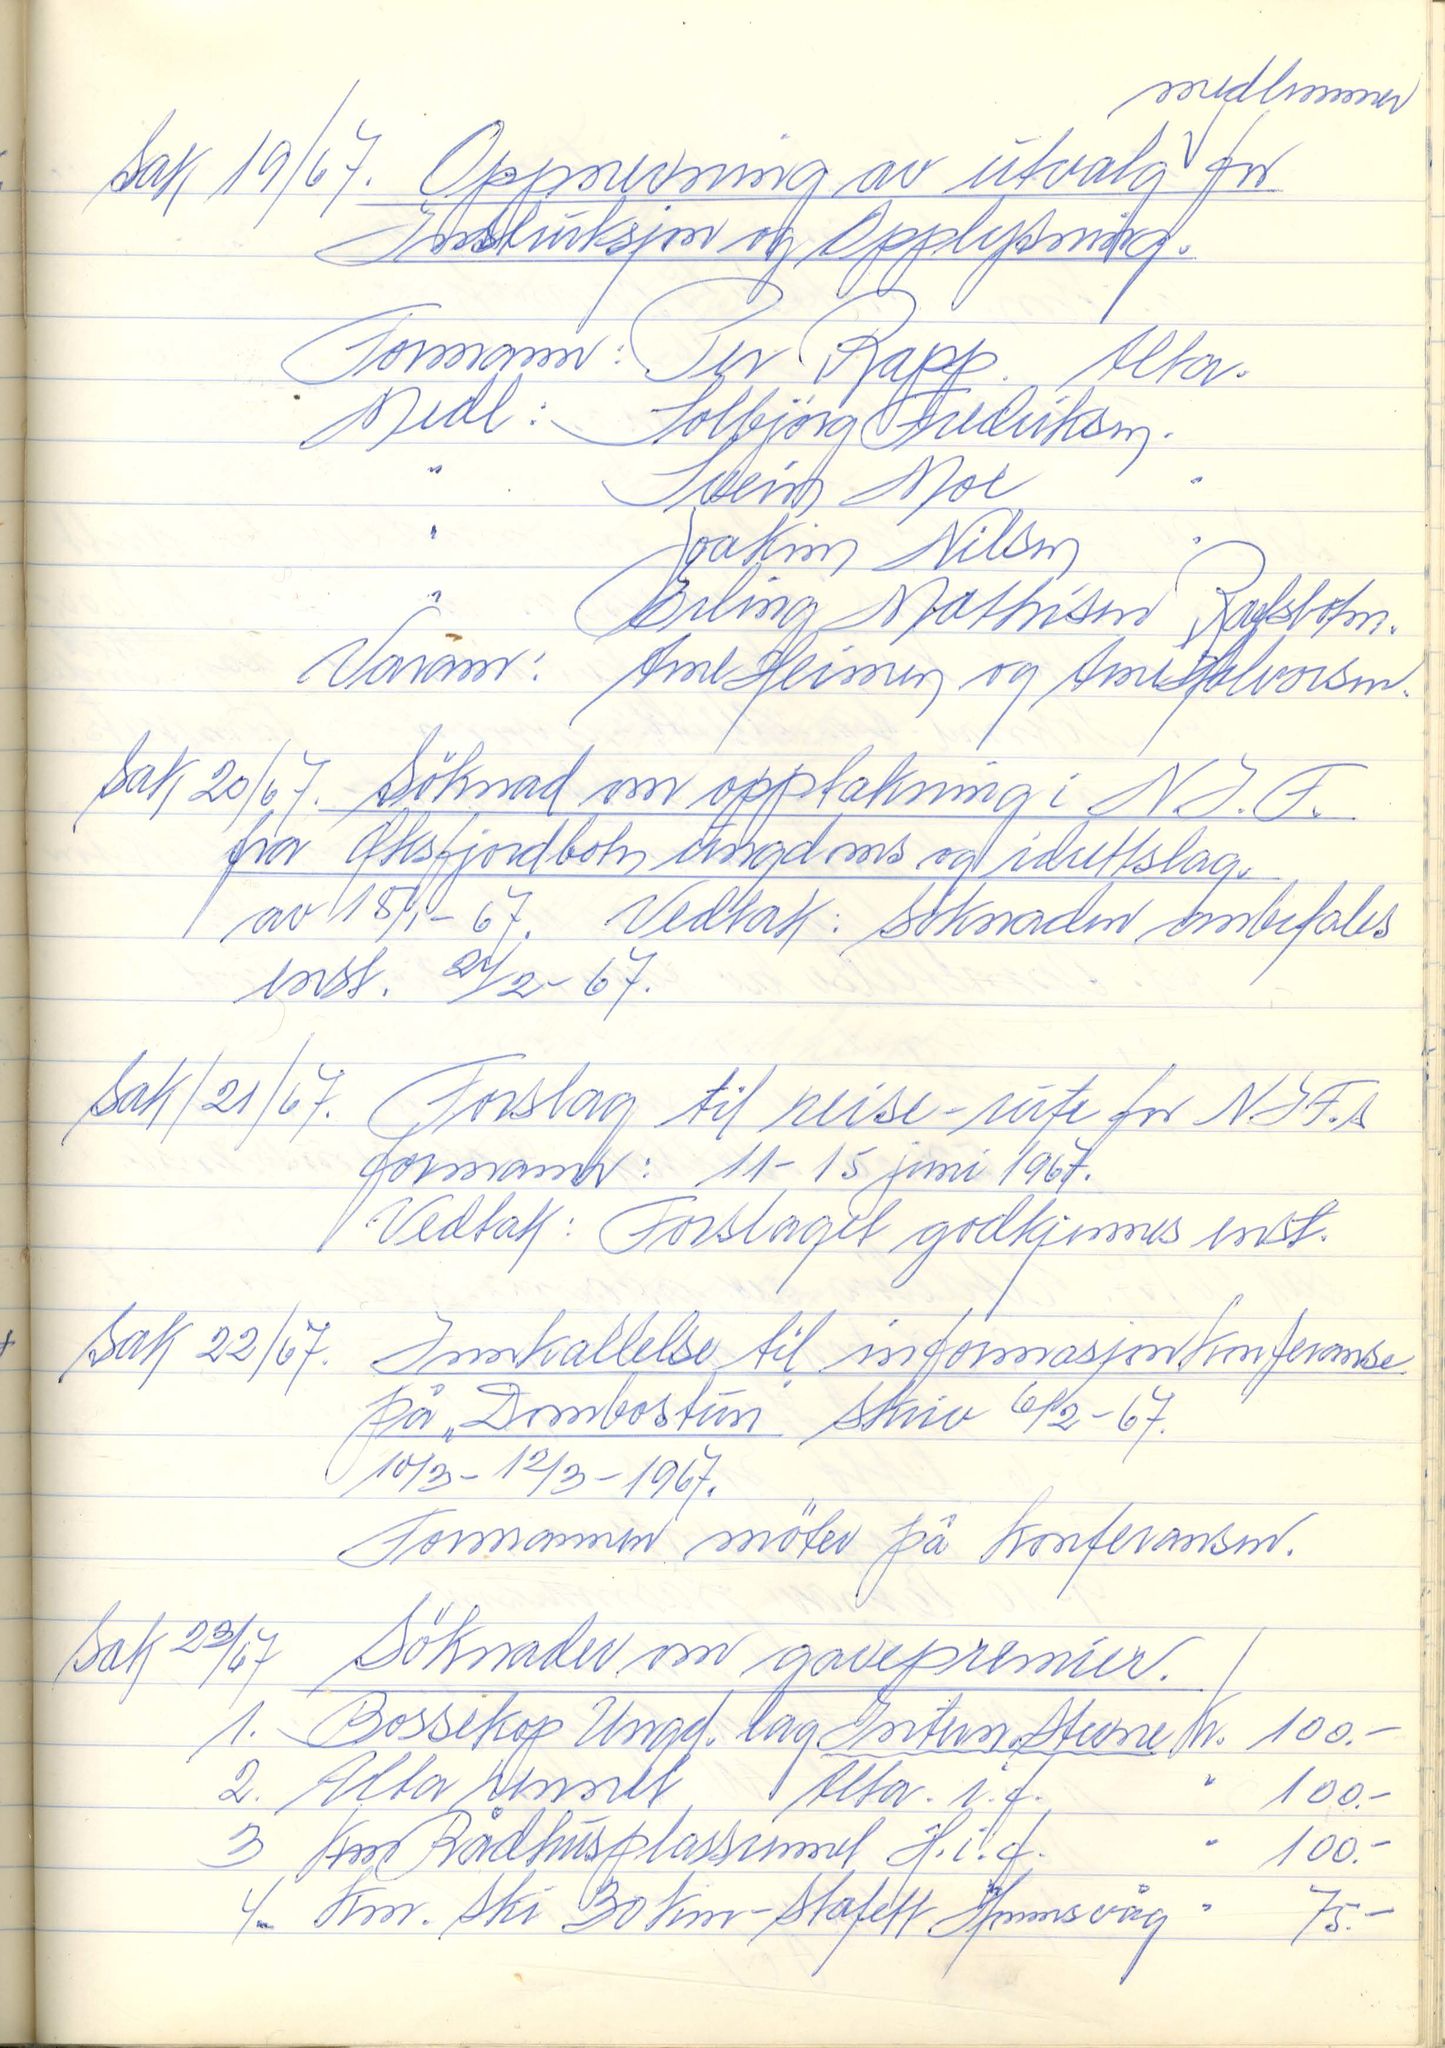 medlemmer
Sak 19/67. Oppnevning av utvalg for
Instruksjon og Opplysning.
Formann: Per Rapp. Alta.
Medl: Solbjörg Fredriksen.
" Svein Moe "
" Joakim Nilsen "
" Erling Mathisen
Varam: Arne Heimen og Arne Halvorsen.
Sak 20/67. Söknad om opptakning i N.I.F.
fra Öksfjordbotn Ungdoms og idrettslag.
av 18/1-67. Vedtak: Söknaden anbefales
enst. 24/2-67.
Sak 21/67. Forslag til reise-rute for N.I.F.s
formann: 11-15 juni 1967.
Vedtak: Forslaget godkjennes enst.
Sak 22/67. Innkallelse til informasjonkonferanse
på "Dombostun" skriv 6/2-67.
10/3-12/3-1967.
Formannen möter på konferansen.
Sak 23/67 Söknader om gavepremier.
1. Bossekop Ungd. lag Intern. Stevne kr. 100.-
2. Alta rennet Alta. i.f. " 100.-
3 Km Rådhusplassrennet H.i.f. " 100.-
4. Km. Ski 30 km-Stafett Honnsvåg " 75.-